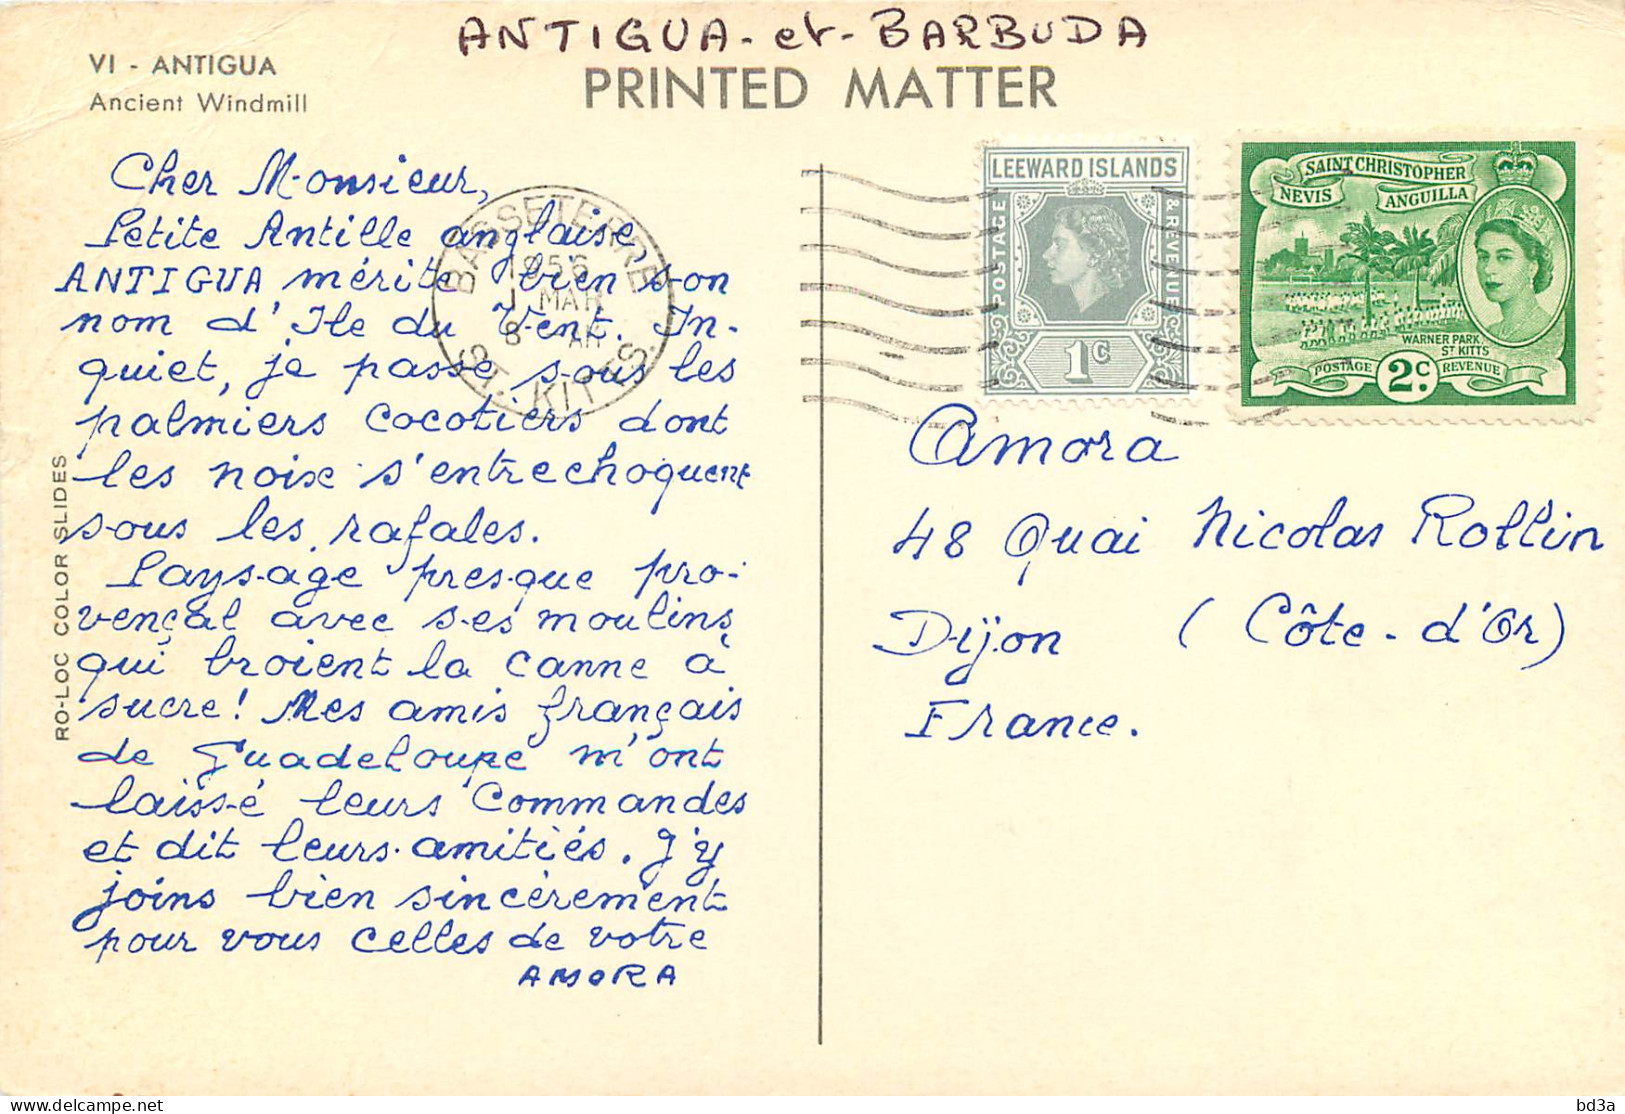 ANTIGUA-et-BARBUDA
VI - ANTIGUA
Ancient Windmill
PRINTED MATTER
Cher Monsieur,
Petite Antille anglaise
ANTIGUA mérite bien son
nom d'Ile du Vent. In-
quiet, je passe sous les
palmiers cocotiers dont
les noix s'entrechoquent
sous les rafales.
Paysage presque pro-
vençal avec ses moulins
qui broient la canne à
sucre! Mes amis français
de Guadeloupe m'ont
laissé leurs commandes
et dit leurs amitiés. J'y
joins bien sincèrement
pour vous celles de votre
AMORA
RO-LOC COLOR SLIDES
BASSETERRE
1956
MAR
8
ST. KITTS.
LEEWARD ISLANDS
POSTAGE
& REVENUE
1c
SAINT CHRISTOPHER
NEVIS
ANGUILLA
WARNER PARK
ST KITTS
POSTAGE
2c.
REVENUE
Amora
48 Quai Nicolas Rollin
Dijon (Côte-d'Or)
France.
bd3a